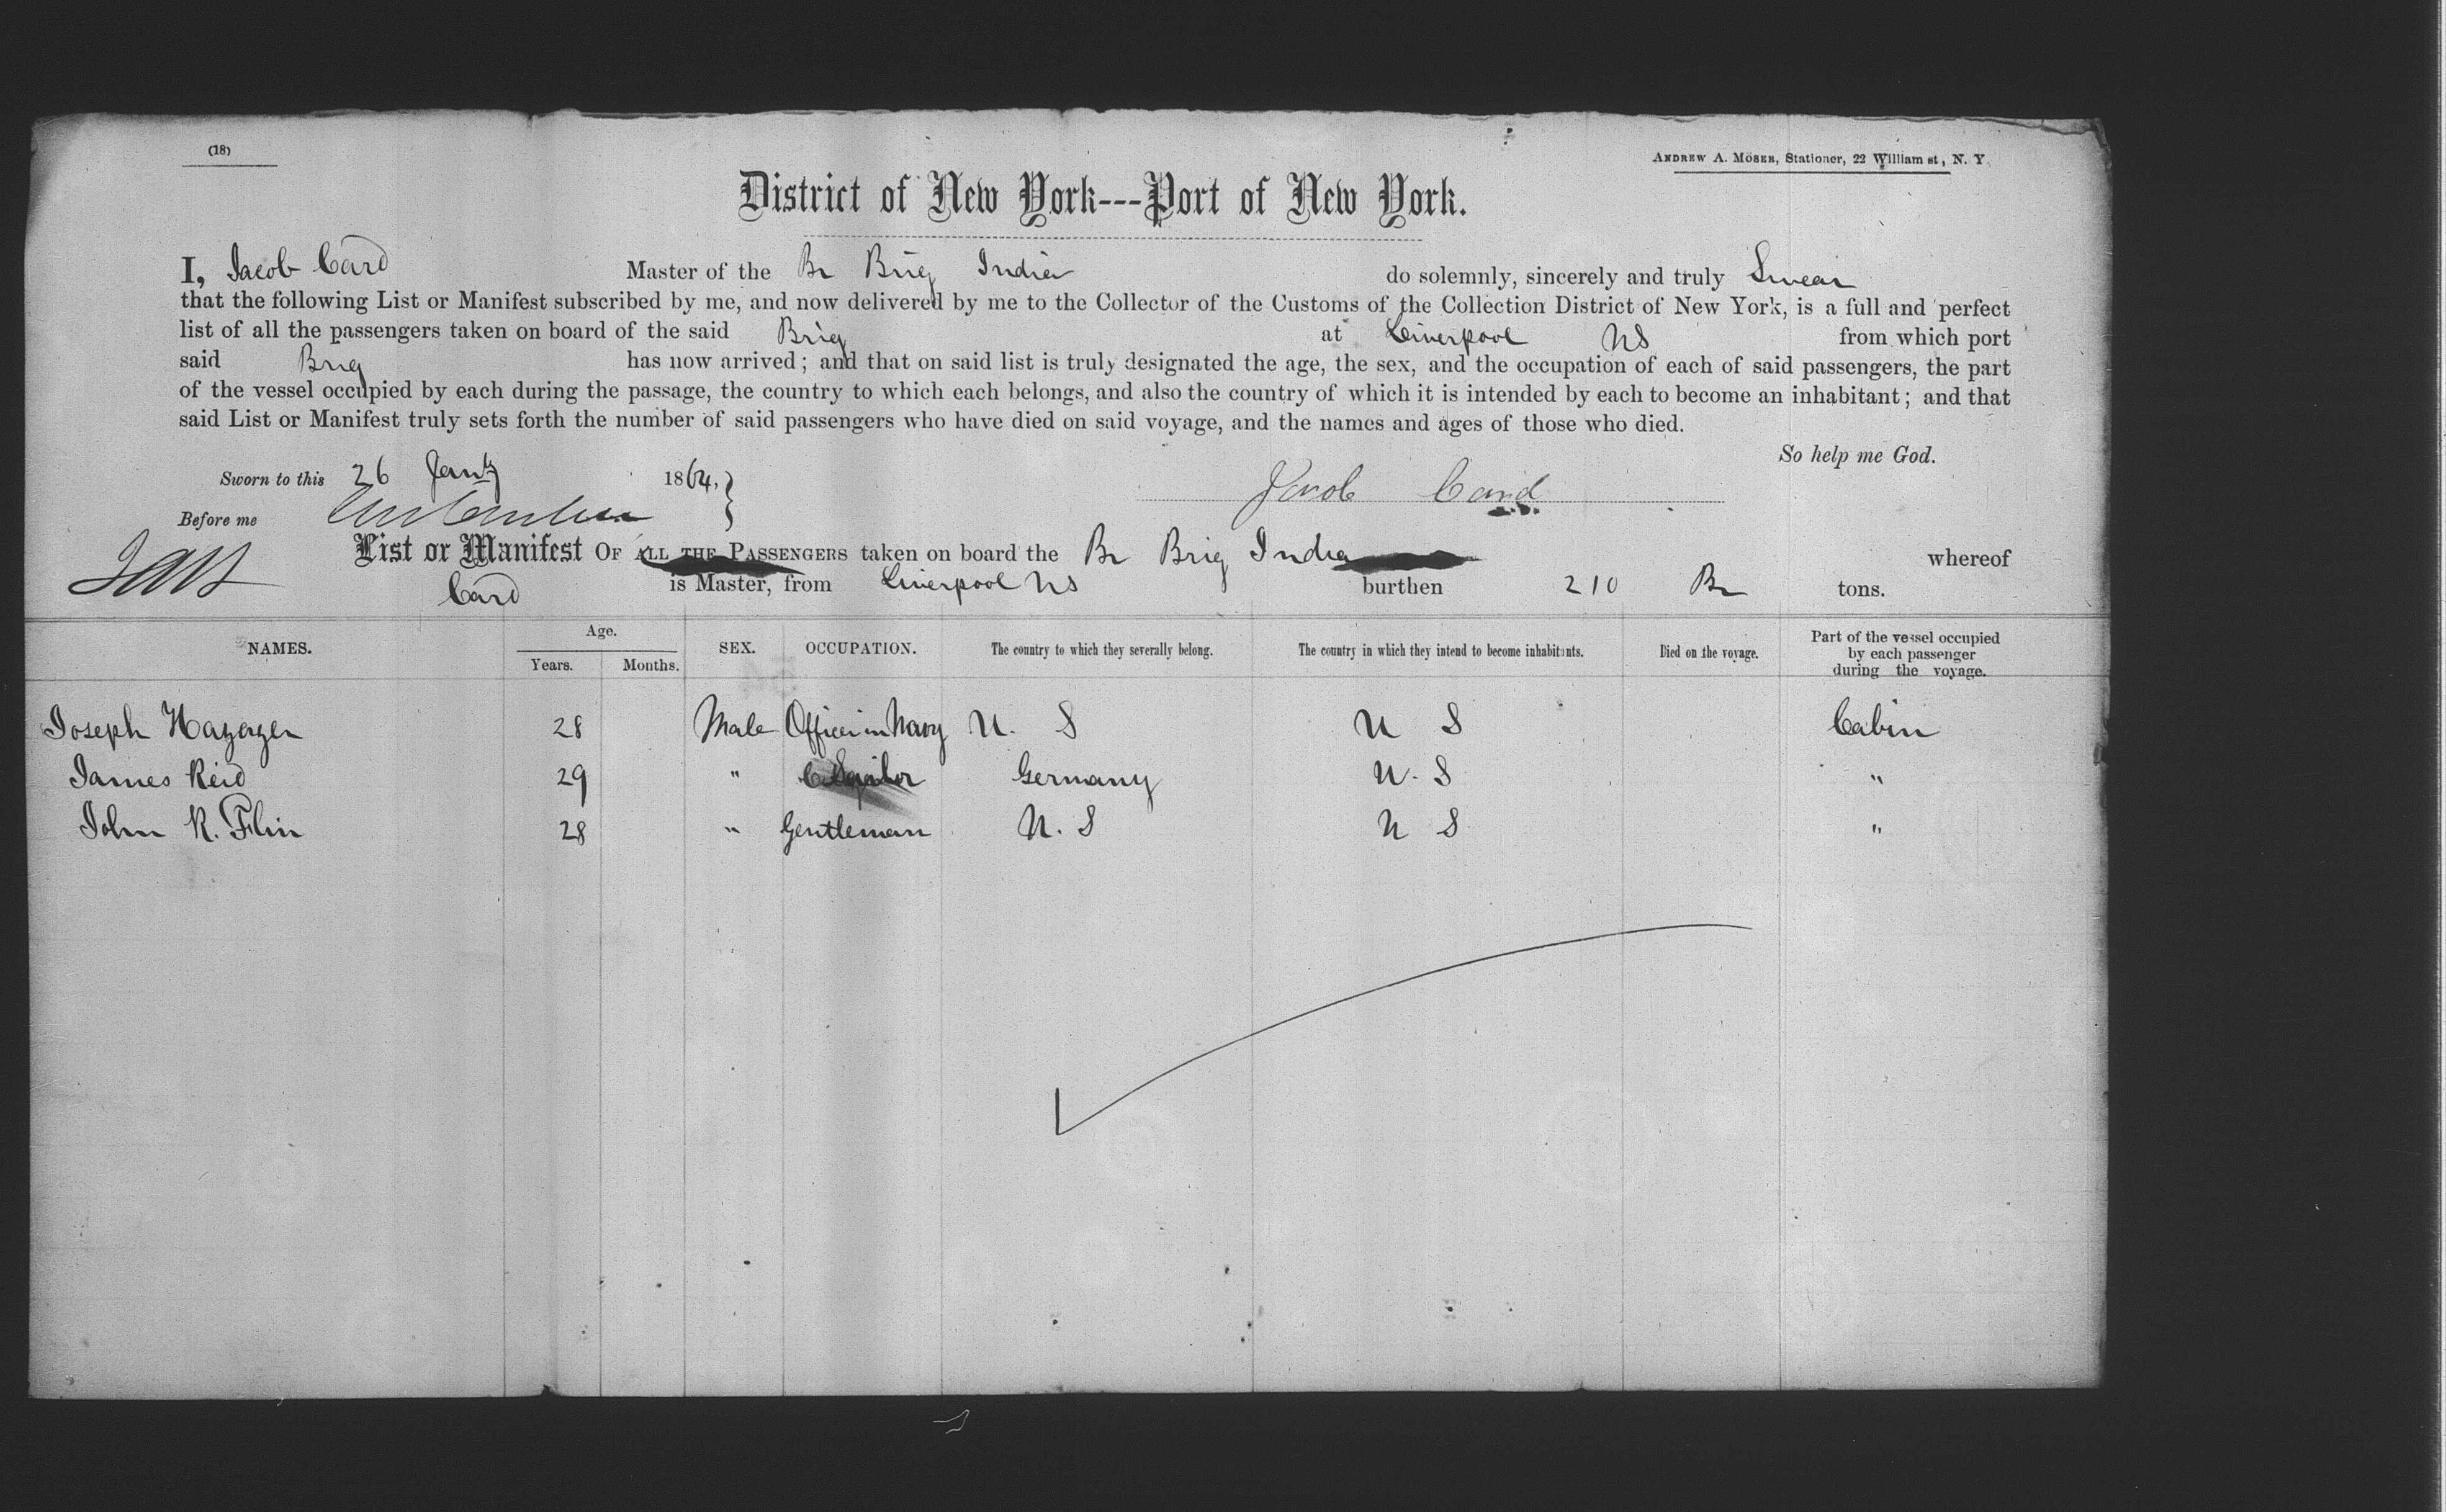 (18)
ANDREW A. MOSER, Stationer, 22 William st, N. Y.
District of New York---Port of New York.
I, Jacob Card Master of the Br Brig India do solemnly, sincerely and truly Swear
that the following List or Manifest subscribed by me, and now delivered by me to the Collector of the Customs of the Collection District of New York, is a full and perfect
list of all the passengers taken on board of the said Brig at Liverpool NS from which port
said Brig has now arrived; and that on said list is truly designated the age, the sex, and the occupation of each of said passengers, the part
of the vessel occupied by each during the passage, the country to which each belongs, and also the country of which it is intended by each to become an inhabitant; and that
said List or Manifest truly sets forth the number of said passengers who have died on said voyage, and the names and ages of those who died.
So help me God.
Sworn to this 26 Jany 1864,
Jacob Card
Before me
List or Manifest OF ALL THE PASSENGERS taken on board the Br Brig India whereof
Card is Master, from Liverpool NS burthen 210 Br tons.
NAMES. Age. Years. Months. SEX. OCCUPATION. The country to which they severally belong. The country in which they intend to become inhabitants. Died on the voyage. Part of the vessel occupied by each passenger during the voyage.
Joseph 28 Male Officer in Navy U. S U S Cabin
James Reid 29 " Germany U. S "
John R. Flin 28 " Gentleman U. S U S "